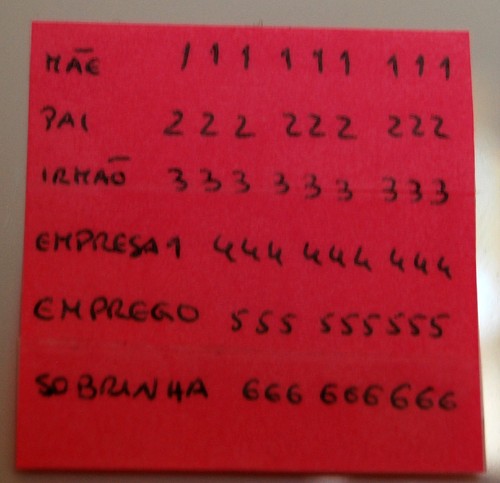 MÃE 111 111 111
PAI 222 222 222
IRMÃO 333 333 333
EMPRESA1 444 444 444
EMPREGO 555 555555
SOBRINHA 666 666666